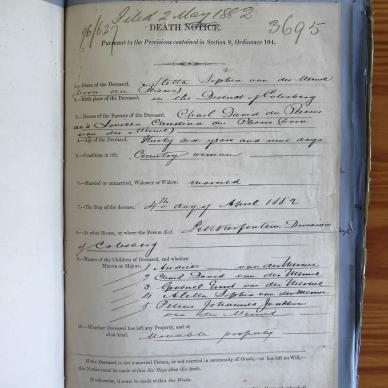 Filed 2 May 1882
96/627
3695
DEATH NOTICE.
Pursuant to the Provisions contained in Section 9, Ordinance 104.
1.—Name of the Deceased, Aletta Sophia van der Merwe
(born du Plessis)
2.—Birth place of the Deceased, in the District of Colesberg
3.—Names of the Parents of the Deceased, Charl David du Plessis
and Louisa Christina du Plessis (born
van der Merwe)
4.—Age of the Deceased, Thirty six years and nine days
5.—Condition in life, Country woman
6.—Married or unmarried, Widower or Widow, married
7.—The Day of the decease, 4th day of April 1882
8.—At what House, or where the Person died, Division
of Colesberg
9.—Names of the Children of the Deceased, and whether
Minors or Majors,
1 Andries van der Merwe
2 Charl David van der Merwe
3 van der Merwe
4 Aletta Sophia van der Merwe
5 Petrus Johannes
van der Merwe
10.—Whether Deceased has left any Property, and of
what kind, Movable property
If the Deceased is not a married Person, or not married in community of Goods,—or has left no Will,—
this Notice must be made within Six Days after the death.
If otherwise, it must be made within Six Weeks.